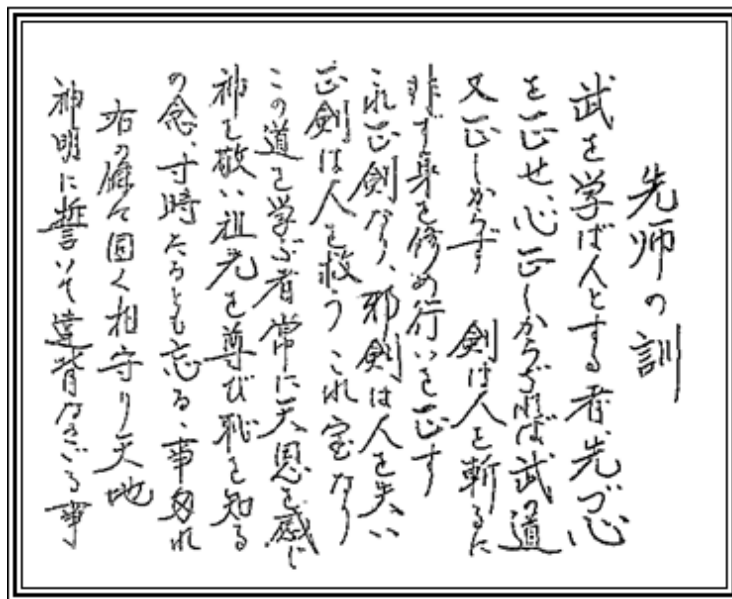 先師の訓
武を学ば人とする者、先づ心
を正せ、心正しからざれば武の道
又正しからず　剣は人を斬るに
非ず身を修め行いを正す
これ正剣なり、邪剣は人を失い
正剣は人を救う　これ宝なり
この道を学ぶ者常に天恩を感じ
神を敬い祖先を尊び恥を知る
の念、寸時たりとも忘るゝ事勿れ
右の條々固く相守り天地
神明に誓いて違背なさざる事